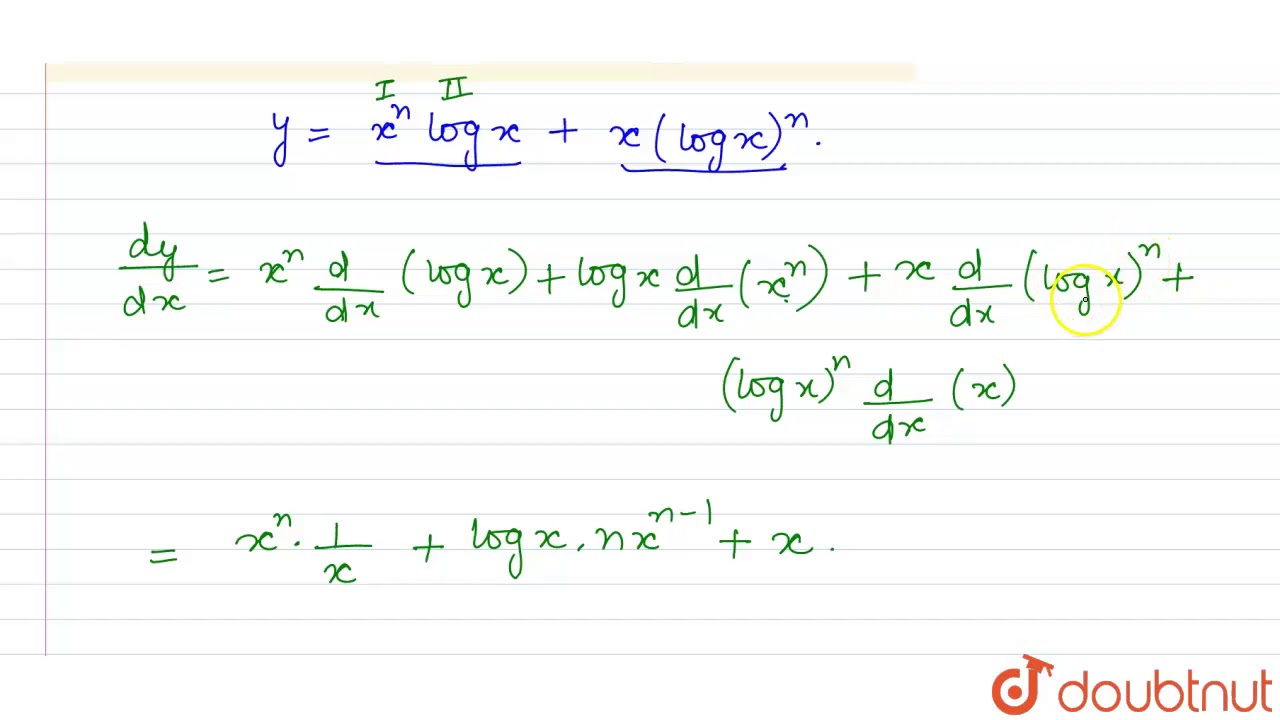 I II
y = xⁿ log x + x (log x)ⁿ.
dy/dx = xⁿ d/dx (log x) + log x d/dx (xⁿ) + x d/dx (log x)ⁿ +
(log x)ⁿ d/dx (x)
= xⁿ · 1/x + log x . n xⁿ⁻¹ + x .
doubtnut